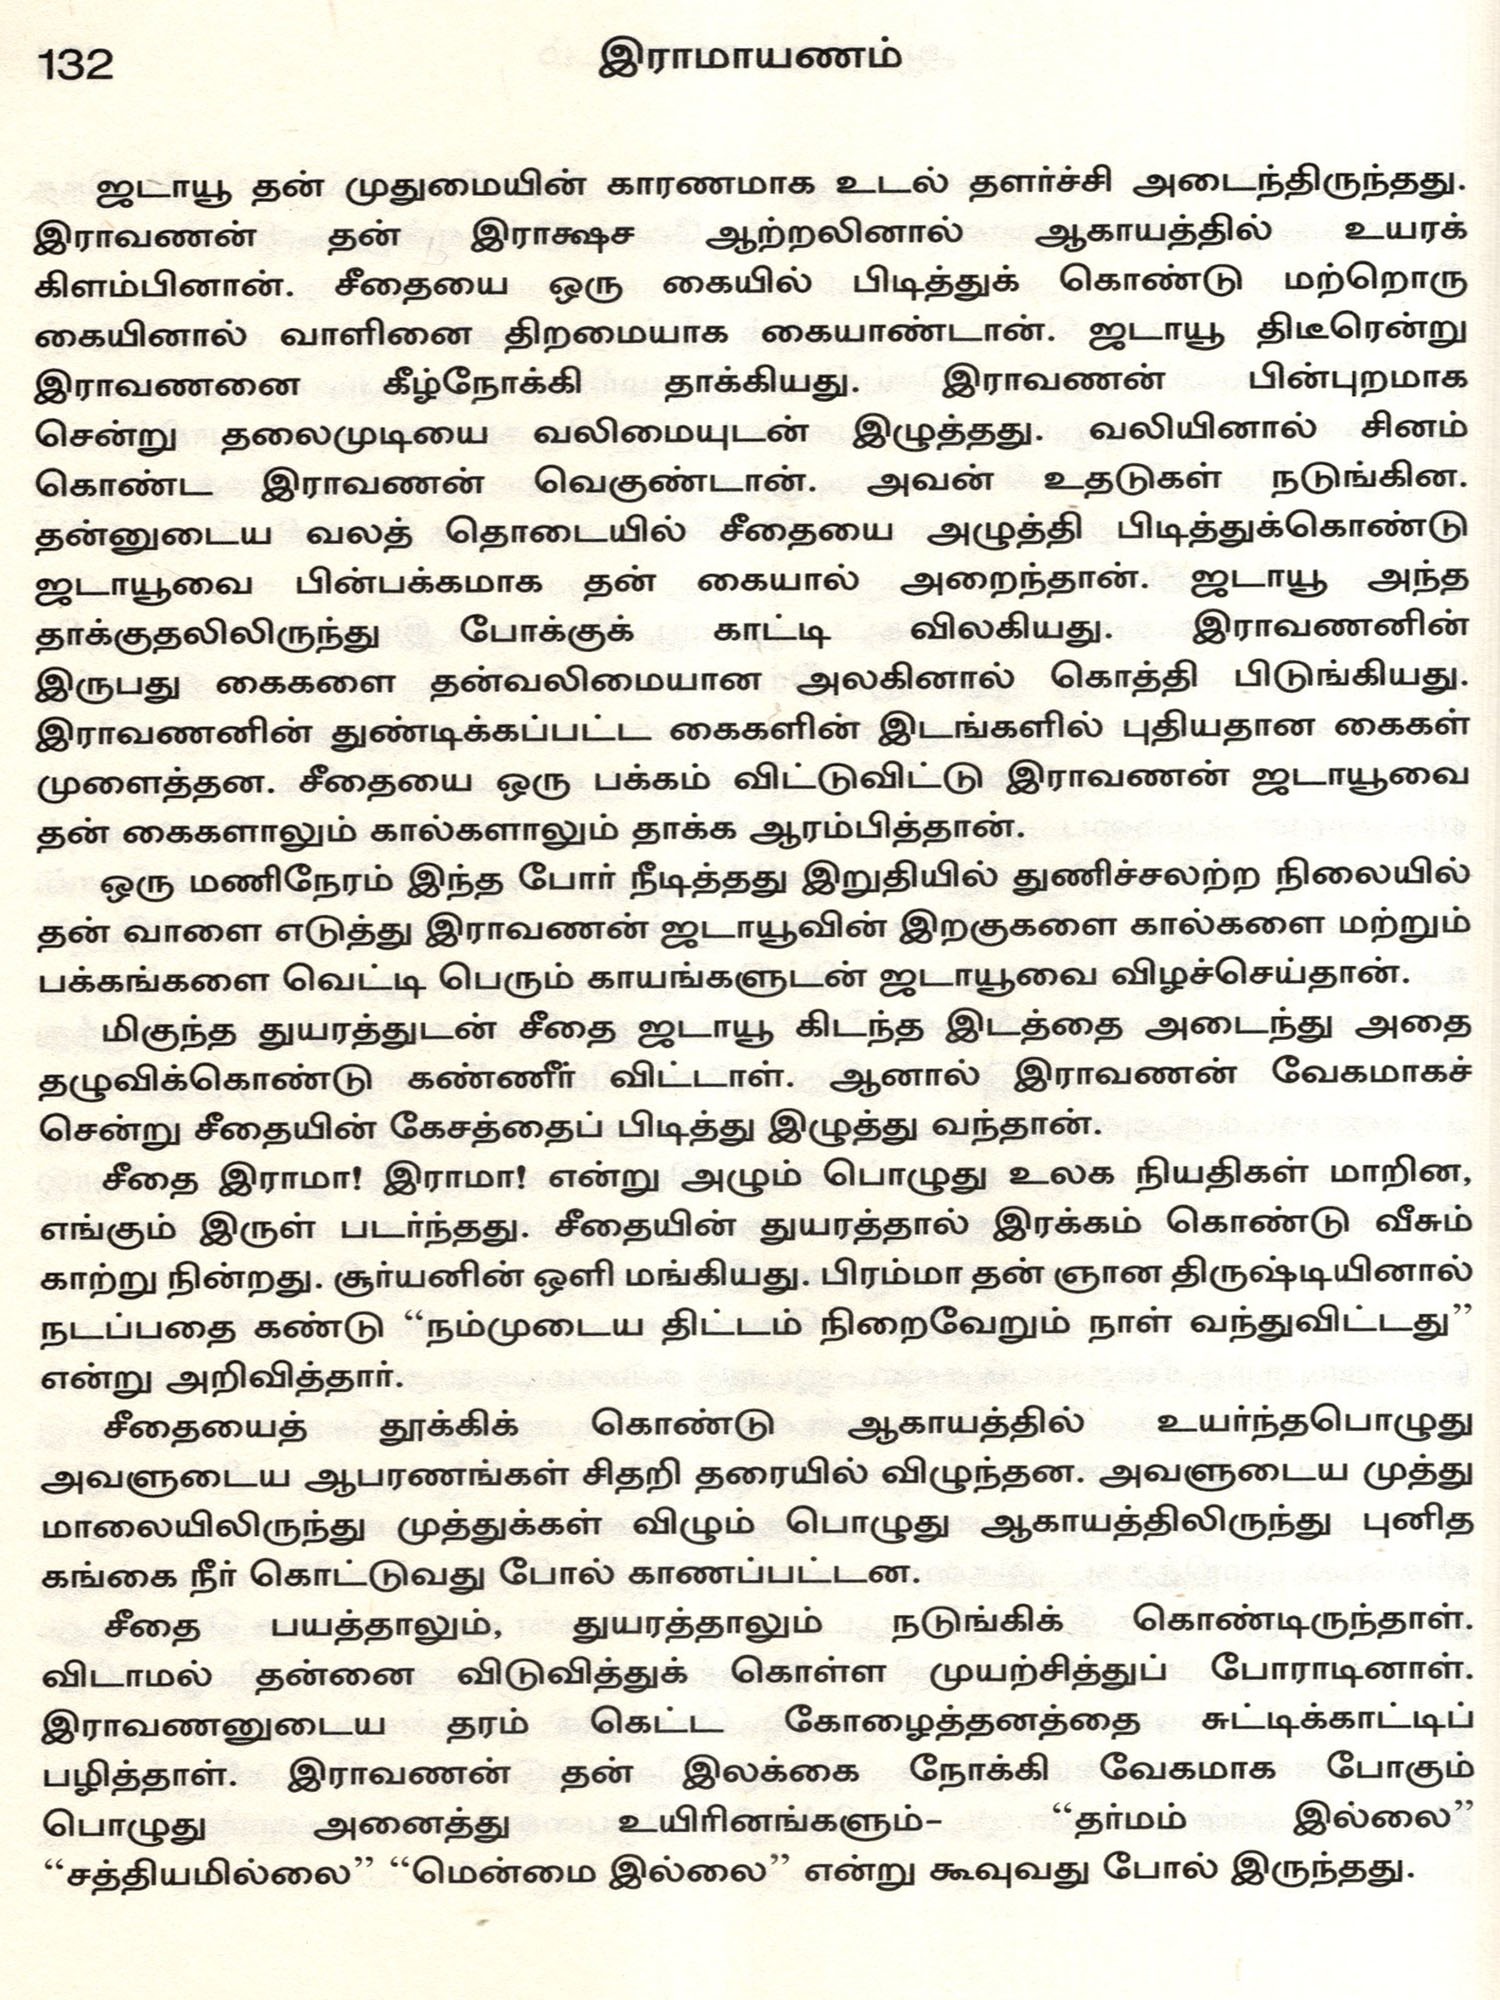 132
இராமாயணம்
ஜடாயூ தன் முதுமையின் காரணமாக உடல் தளர்ச்சி அடைந்திருந்தது.
இராவணன் தன் இராக்ஷச ஆற்றலினால் ஆகாயத்தில் உயரக்
கிளம்பினான். சீதையை ஒரு கையில் பிடித்துக் கொண்டு மற்றொரு
கையினால் வாளினை திறமையாக கையாண்டான். ஜடாயூ திடீரென்று
இராவணனை கீழ்நோக்கி தாக்கியது. இராவணன் பின்புறமாக
சென்று தலைமுடியை வலிமையுடன் இழுத்தது. வலியினால் சினம்
கொண்ட இராவணன் வெகுண்டான். அவன் உதடுகள் நடுங்கின.
தன்னுடைய வலத் தொடையில் சீதையை அழுத்தி பிடித்துக்கொண்டு
ஜடாயூவை பின்பக்கமாக தன் கையால் அறைந்தான். ஜடாயூ அந்த
தாக்குதலிலிருந்து போக்குக் காட்டி விலகியது. இராவணனின்
இருபது கைகளை தன்வலிமையான அலகினால் கொத்தி பிடுங்கியது.
இராவணனின் துண்டிக்கப்பட்ட கைகளின் இடங்களில் புதியதான கைகள்
முளைத்தன. சீதையை ஒரு பக்கம் விட்டுவிட்டு இராவணன் ஜடாயூவை
தன் கைகளாலும் கால்களாலும் தாக்க ஆரம்பித்தான்.
ஒரு மணிநேரம் இந்த போர் நீடித்தது இறுதியில் துணிச்சலற்ற நிலையில்
தன் வாளை எடுத்து இராவணன் ஜடாயூவின் இறகுகளை கால்களை மற்றும்
பக்கங்களை வெட்டி பெரும் காயங்களுடன் ஜடாயூவை விழச்செய்தான்.
மிகுந்த துயரத்துடன் சீதை ஜடாயூ கிடந்த இடத்தை அடைந்து அதை
தழுவிக்கொண்டு கண்ணீர் விட்டாள். ஆனால் இராவணன் வேகமாகச்
சென்று சீதையின் கேசத்தைப் பிடித்து இழுத்து வந்தான்.
சீதை இராமா! இராமா! என்று அழும் பொழுது உலக நியதிகள் மாறின,
எங்கும் இருள் படர்ந்தது. சீதையின் துயரத்தால் இரக்கம் கொண்டு வீசும்
காற்று நின்றது. சூர்யனின் ஒளி மங்கியது. பிரம்மா தன் ஞான திருஷ்டியினால்
நடப்பதை கண்டு “நம்முடைய திட்டம் நிறைவேறும் நாள் வந்துவிட்டது”
என்று அறிவித்தார்.
சீதையைத் தூக்கிக் கொண்டு ஆகாயத்தில் உயர்ந்தபொழுது
அவளுடைய ஆபரணங்கள் சிதறி தரையில் விழுந்தன. அவளுடைய முத்து
மாலையிலிருந்து முத்துக்கள் விழும் பொழுது ஆகாயத்திலிருந்து புனித
கங்கை நீர் கொட்டுவது போல் காணப்பட்டன.
சீதை பயத்தாலும், துயரத்தாலும் நடுங்கிக் கொண்டிருந்தாள்.
விடாமல் தன்னை விடுவித்துக் கொள்ள முயற்சித்துப் போராடினாள்.
இராவணனுடைய தரம் கெட்ட கோழைத்தனத்தை சுட்டிக்காட்டிப்
பழித்தாள். இராவணன் தன் இலக்கை நோக்கி வேகமாக போகும்
பொழுது அனைத்து உயிரினங்களும்- “தர்மம் இல்லை”
“சத்தியமில்லை” “மென்மை இல்லை” என்று கூவுவது போல் இருந்தது.